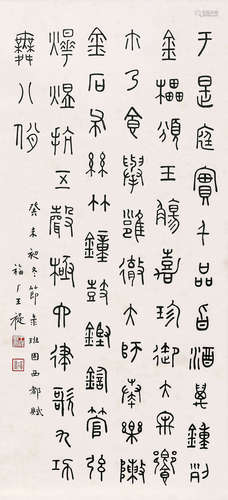 于是庭實千品旨酒萬鍾列
金罍頒玉觴嘉珍御大牢饗
尒乃食舉雝徹大師奏樂陳
金石布絲竹鐘鼓鏗鍧管弦
燁煜抗五聲極六律歌九功
舞八佾
癸未初冬節彔班固西都賦
福厂王禔